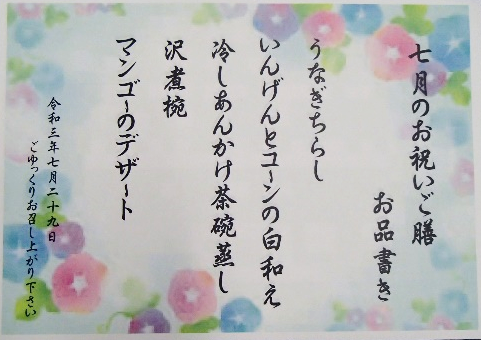 七月のお祝いご膳
お品書き
うなぎちらし
いんげんとコーンの白和え
冷しあんかけ茶碗蒸し
沢煮椀
マンゴーのデザート
令和三年七月二十九日
ごゆっくりお召し上がり下さい